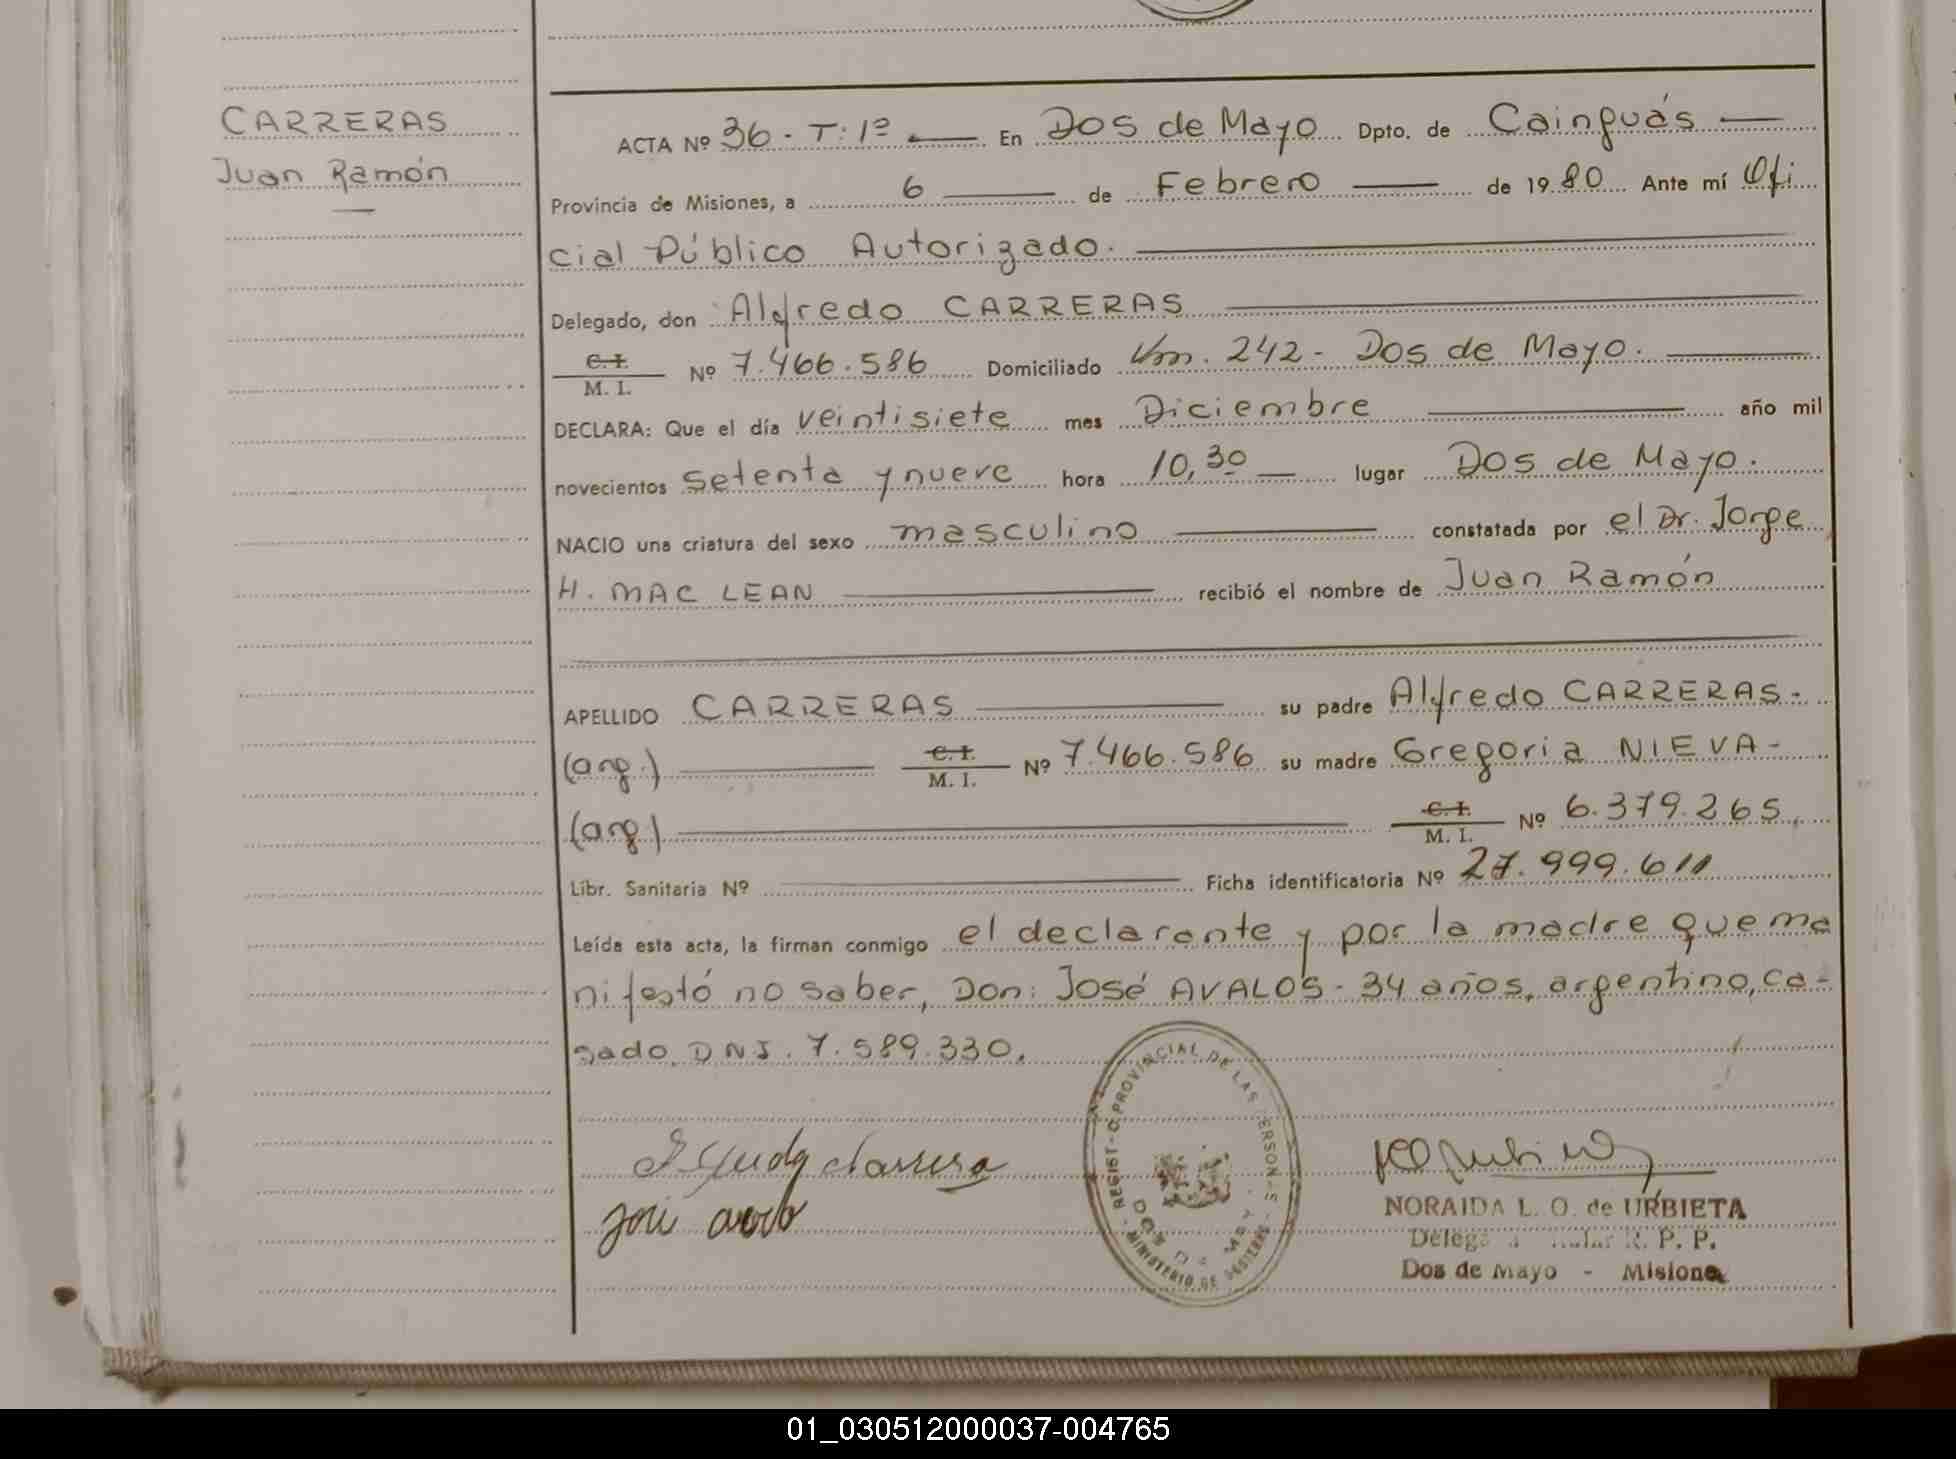 CARRERAS
Juan Ramón
ACTA Nº 36 - T: 1º En Dos de Mayo Dpto. de Cainguás
Provincia de Misiones, a 6 de Febrero de 1980 Ante mí Ofi
cial Público Autorizado.
Delegado, don Alfredo CARRERAS
C. I.
M. I. Nº 7.466.586 Domiciliado Km. 242 - Dos de Mayo.
DECLARA: Que el día veintisiete mes Diciembre año mil
novecientos setenta y nueve hora 10,30 lugar Dos de Mayo.
NACIO una criatura del sexo masculino constatada por el Dr. Jorge
H. MAC LEAN recibió el nombre de Juan Ramón
APELLIDO CARRERAS su padre Alfredo CARRERAS -
(arg.) C. I. M. I. Nº 7.466.586 su madre Gregoria NIEVA -
(arg) C. I. M. I. Nº 6.379.265,
Libr. Sanitaria Nº Ficha identificatoria Nº 27.999.611
Leída esta acta, la firman conmigo el declarante y por la madre que ma
nifestó no saber, Don: José AVALOS - 34 años, argentino, ca-
sado, DNI. 7.589.330.
REGIST O PROVINCIAL DE LAS ERSON S
MINISTERIO DE
NORAIDA L. O. de URBIETA
R. P. P.
Dos de Mayo - Misiones
01_030512000037-004765